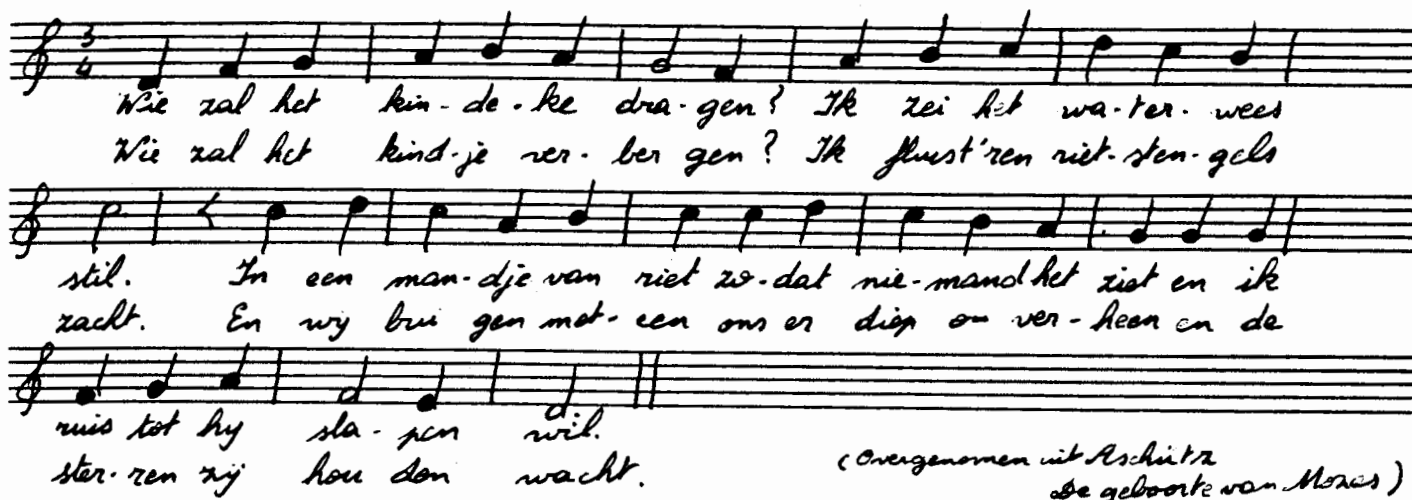 3
4
Wie zal het kin-de-ke dra-gen? Ik zei het wa-ter. wees
Wie zal het kind-je ver-ber gen? Ik fluist'ren riet-sten-gels
stil. In een man-dje van riet zo-dat nie-mand het ziet en ik
zacht. En wij bui gen met-een ons er diep o- ver-heen en de
ruis tot hij sla-pen wil.
ster-ren zij hou den wacht.
(Overgenomen uit A schütz
De geboorte van Mozes)